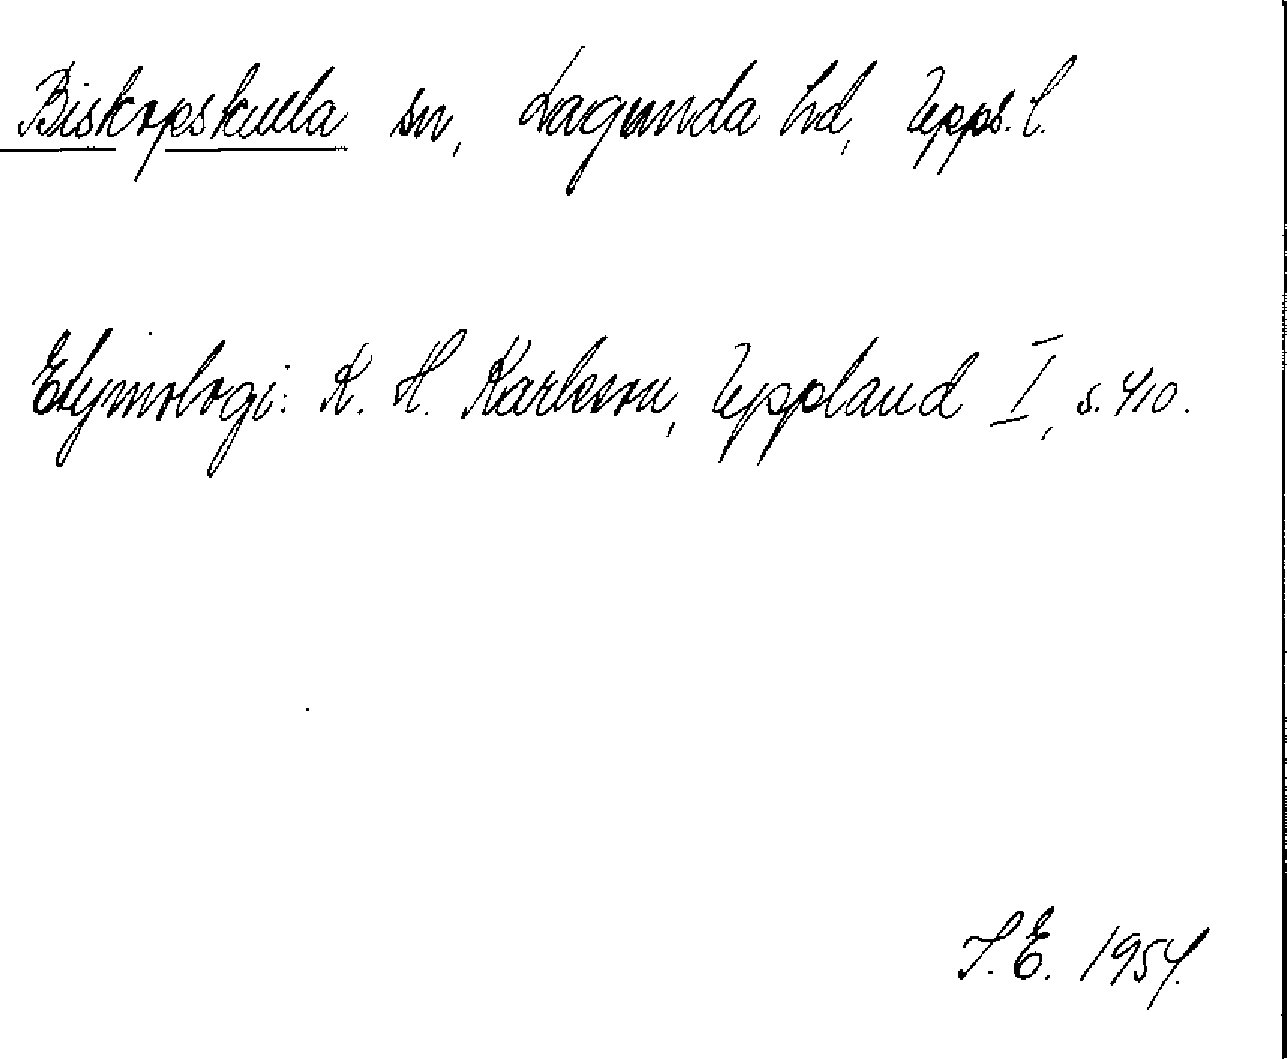 Biskopskulla sn, Lagunda hd, Upps. l.
Etymologi: K. H. Karlsson, Uppland I, s. 410.
S.E. 1954.